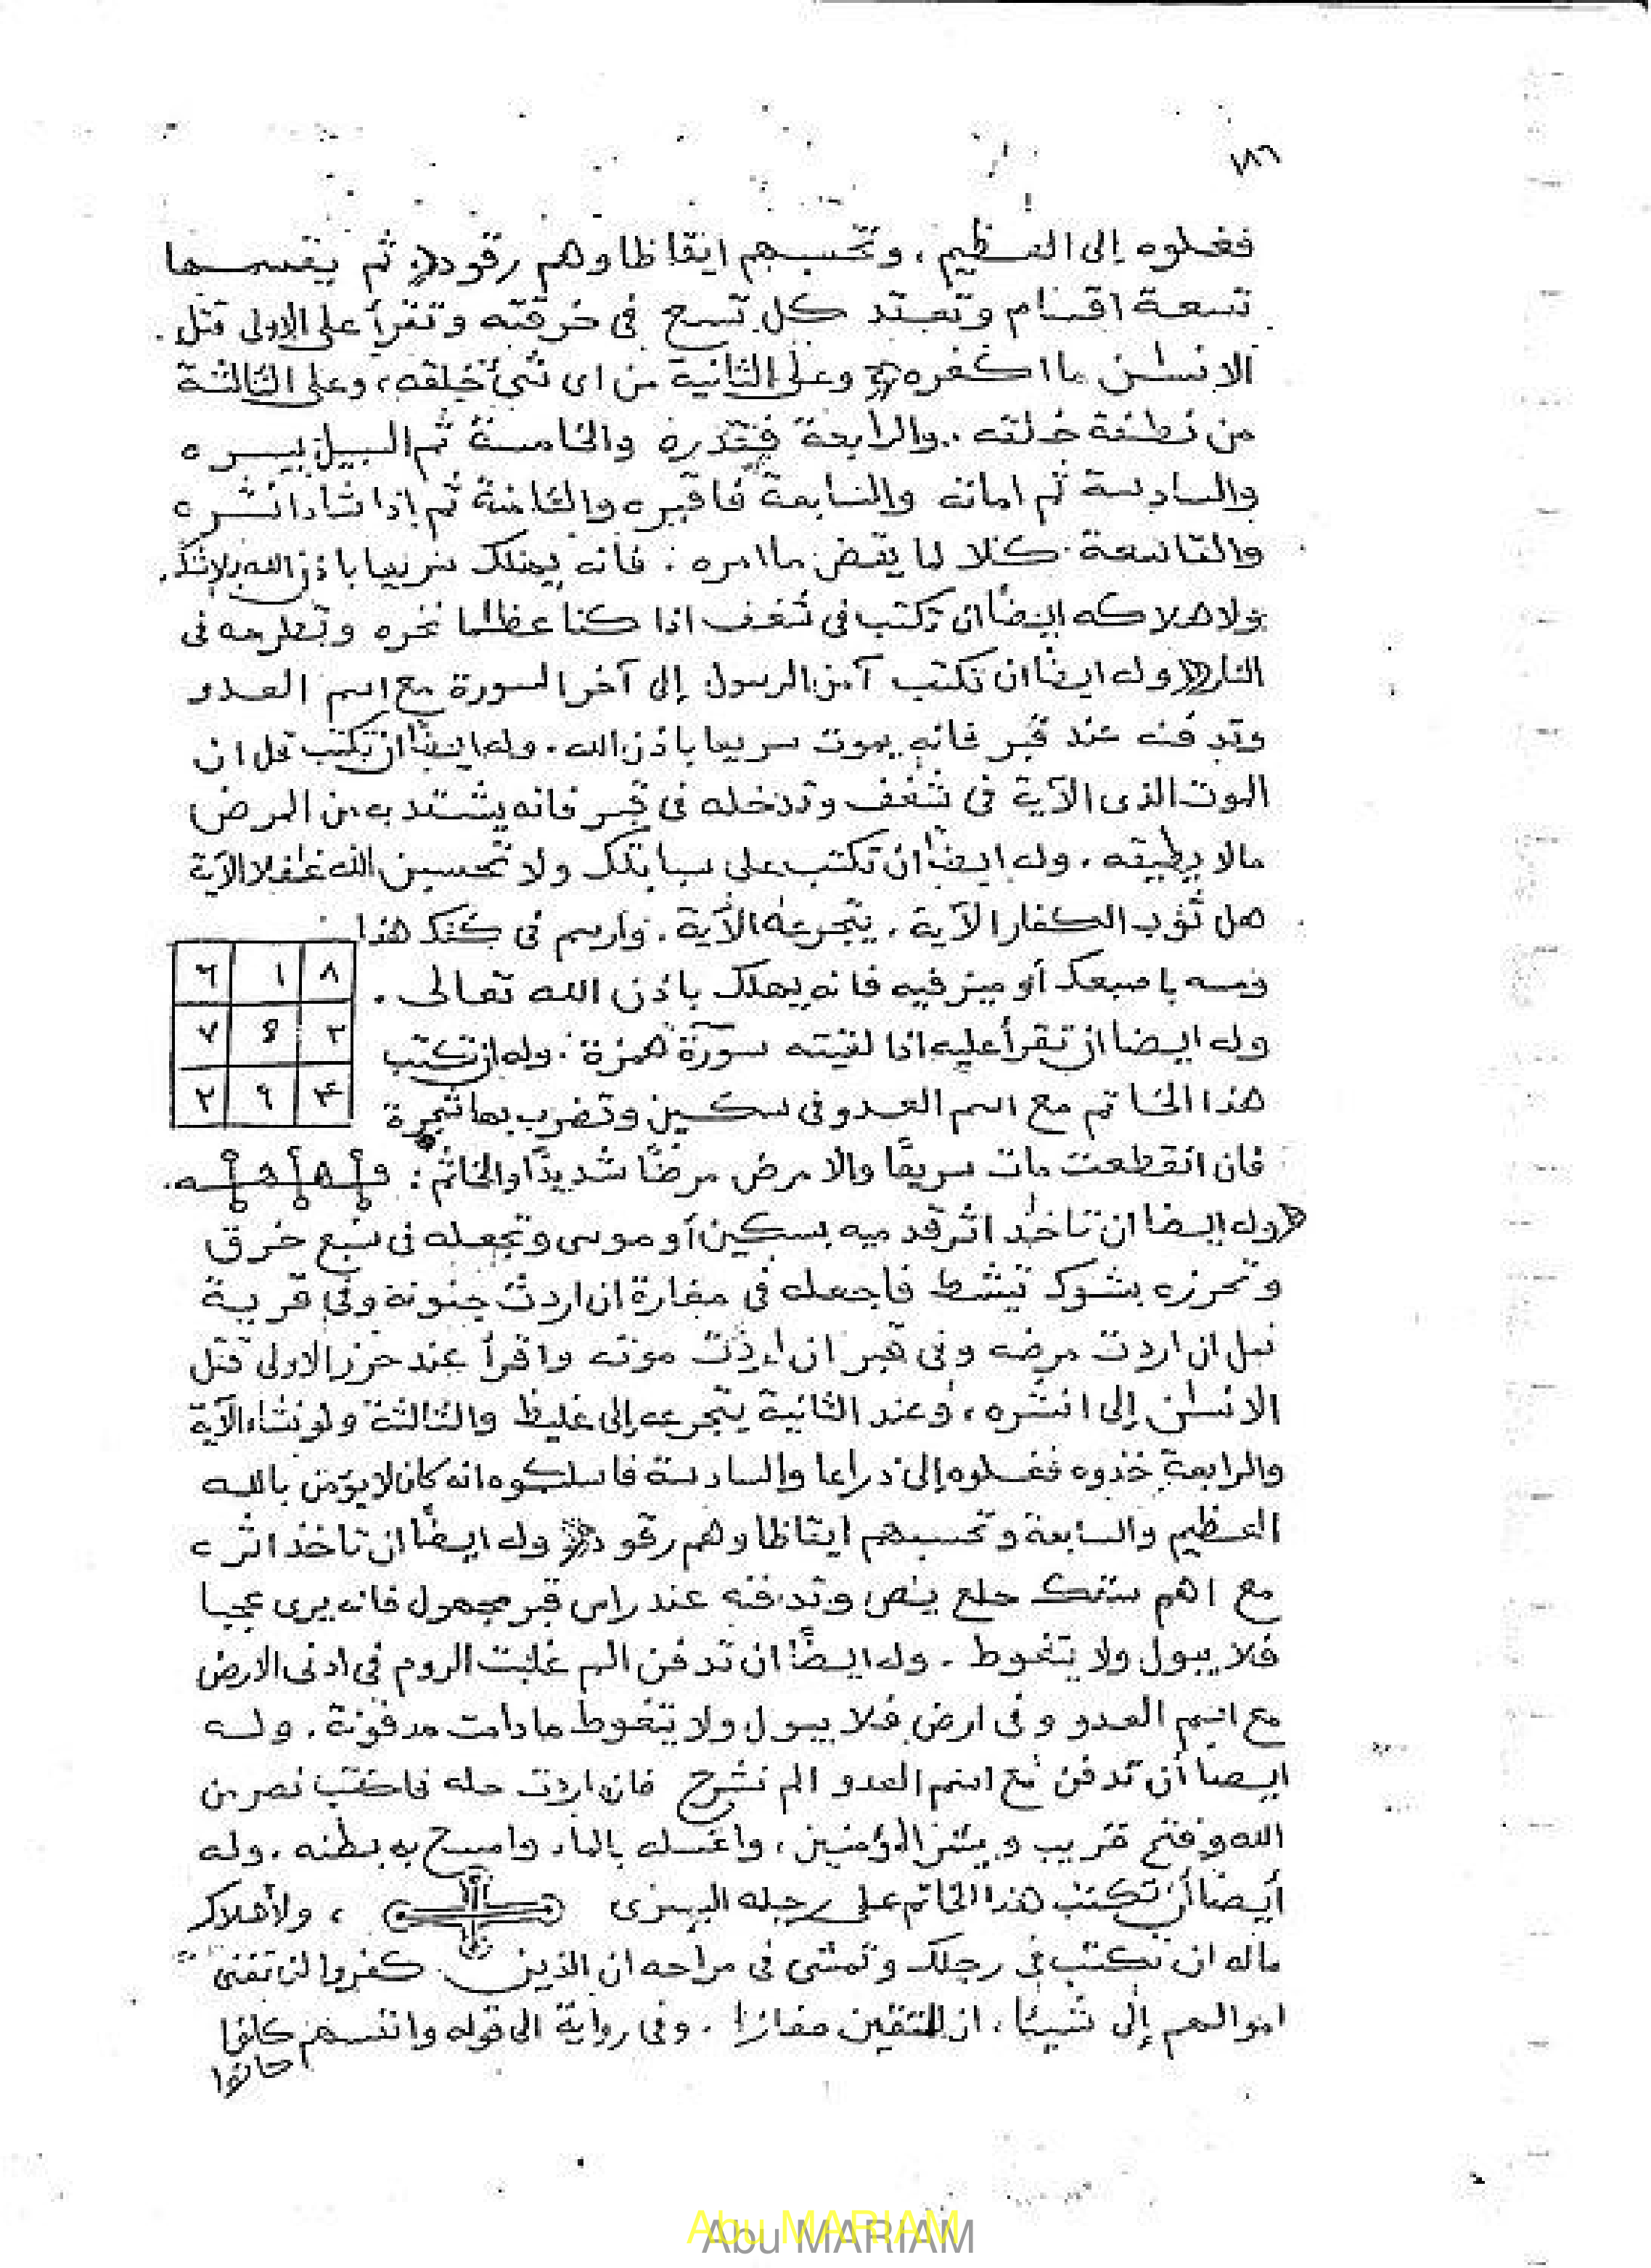 ١٨٦
فغلوه إلى العظيم، وتحسبهم ايقاظا وهم رقود، ثم يقسمها
تسعة اقسام وتعقد كل تسع في خرقته وتقرأ على الاولى قتل
الانسٰن ما اكفره وعلى الثانية من اى شئ خلقه، وعلى الثالثة
من نطفة خلقه. والرابعة فقدره والخامسة ثم السبيل يسره
والسادسة ثم اماته والسابعة فاقبره والثامنة ثم إذا شاء انشره
والتاسعة كلا لما يقض ما امره. فانه يهلك سريعا باذن الله بلا شك.
ولاهلاكه ايضًا ان تكتب في شغف اذا كنا عظٰما نخره وتطرحه في
النار وله ايضا ان تكتب آمن الرسول إلى آخر السورة مع اسم العدو
وتدفنه عند قبر فانه يموت سريعا باذن الله. وله ايضًا ان تكتب قل ان
الموت الذى الآية في شغف وتدخله في قبر فانه يشتد به من المرض
مالا يطيقه. وله ايضًا ان تكتب على سبابتك ولا تحسبن الله غٰفلا الآية
هل ثوب الكفار الآية. يتجرعه الآية. وارسم في كفك هذا
ومسه باصبعك أو ميز فيه فانه يهلك باذن الله تعالى.
٨ ١ ٦
٣ ٥ ٧
٤ ٩ ٢
وله ايضا ان تقرأ عليه اذا لقيته سورة همزة. وله ان تكتب
هذا الخاتم مع اسم العدو فى سكين وتضرب بها شجرة
فان انقطعت مات سريعًا والا مرض مرضًا شديدًا والخاتم:
وله ايضا ان تاخذ اثر قدميه بسكين أو موسى وتجعله فى سبع خرق
وتحرزه بشوك تيشط فاجعله في مغارة ان اردت جنونه وفى قرية
نمل ان اردت مرضه وفى قبر ان اردت موته واقرأ عند حرز الاولى قتل
الانسٰن إلى انشره، وعند الثانية يتجرعه إلى غليظ والثالثة ولو نشاء الآية
والرابعة خذوه فغلوه إلى ذراعا والسادسة فاسلكوه انه كان لا يؤمن بالله
العظيم والسابعة وتحسبهم ايقاظا وهم رقود وله ايضًا ان تاخذ اثره
مع وتدفنه عند راس قبر مجهول فانه يرى عجبا
فلا يبول ولا يتغوط. وله ايضًا ان تدفن الم غلبت الروم فى ادنى الارض
مع اسم العدو وفى ارض فلا يبول ولا يتغوط ما دامت مدفونة. وله
ايضا أن تدفن مع اسم العدو الم نشرح فان اردت حله فاكتب نصر من
الله وفتح قريب وبشر المؤمنين، واغسله بالماء وامسح به بطنه. وله
أيضا أن تكتب هذا الخاتم على رجله اليسرى ، ولأهلاك
ماله ان تكتب في رجلك وتمشى فى مراحه ان الذين كفروا لن تغنى
اموالهم إلى شيئا، ان للمتقين مفازا. وفى رواية الى قوله وانفسهم كانوا
كانوا
Abu MARIAM
Abu MARIAM